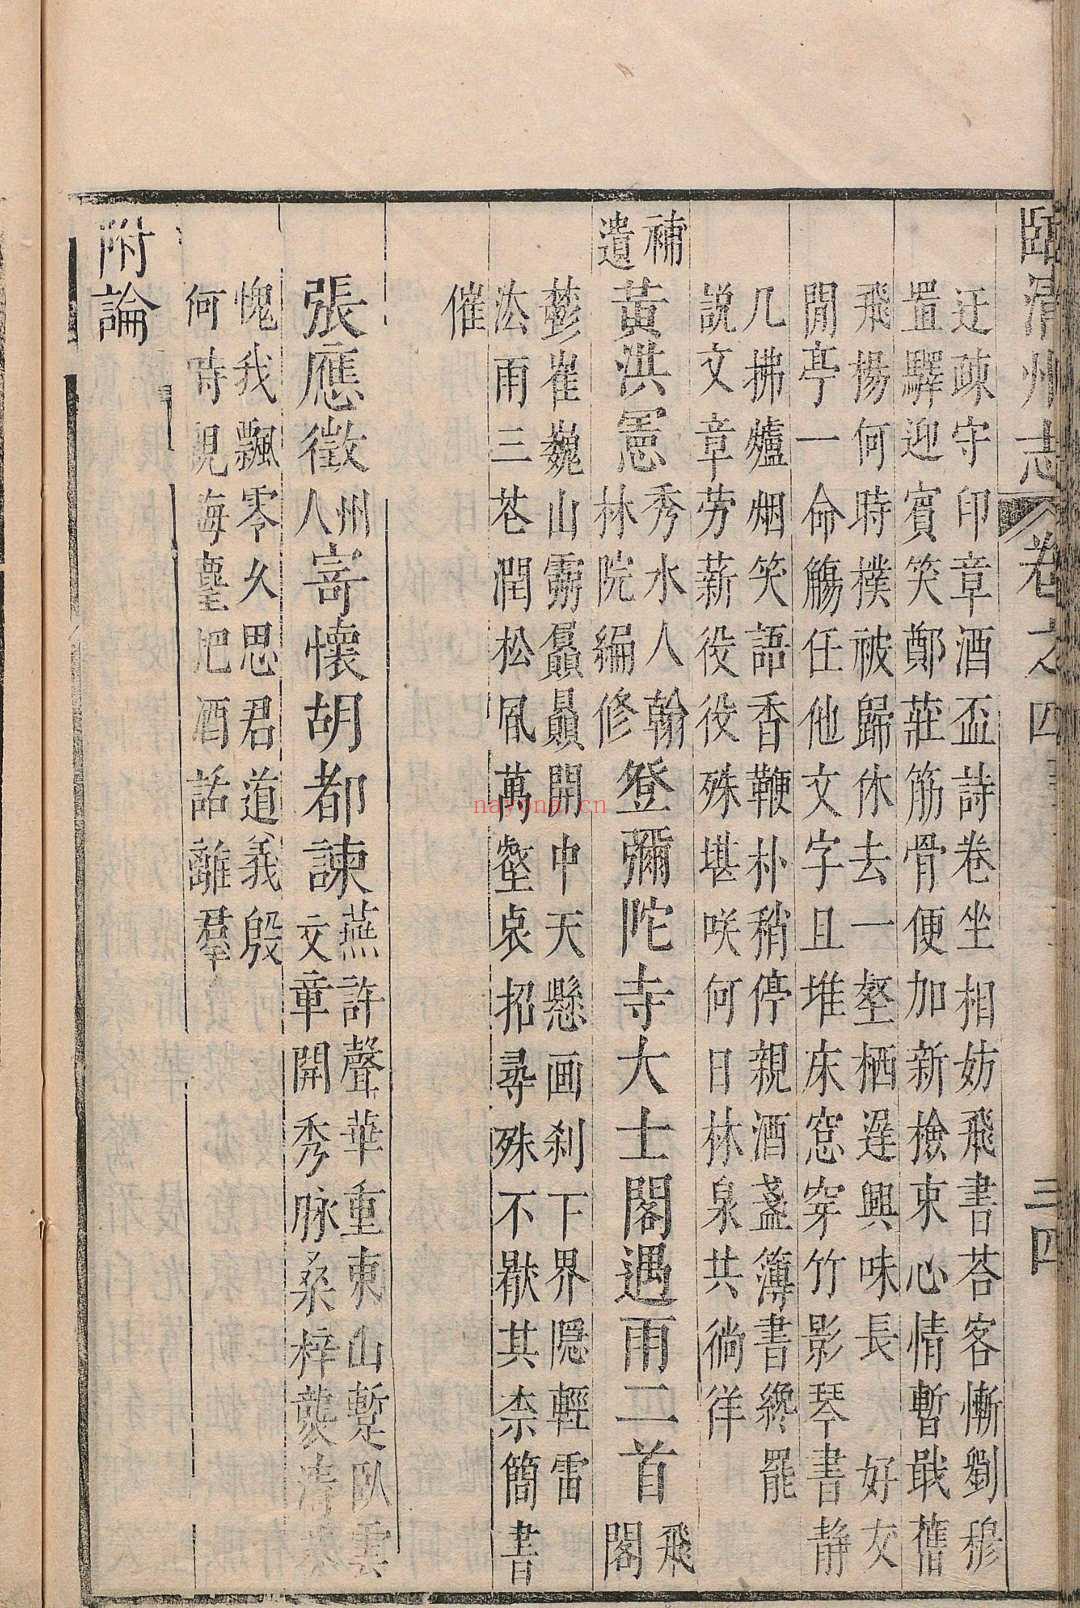 臨清州志 卷之四 三四
迂疎守印章酒盃詩卷坐相妨飛書荅客慚劉穆
置驛迎賓笑鄭莊筋骨便加新檢束心情暫戢舊
飛揚何時襆被歸休去一壑栖遲興味長 好友
閒亭一命觴任他文字且堆床窓穿竹影琴書静
几拂爐烟笑語香鞭朴稍停親酒盞簿書纔罷
説文章劳薪役役殊堪咲何日林泉共徜徉
補遺
黃洪憲
秀水人翰
林院編修
登彌陀寺大士閣遇雨二首
飛
閣
欝崔巍山霛贔屭開中天懸画刹下界隠輕雷
浤雨三苍潤松風萬壑哀招尋殊不猒其柰簡書
催
張應徵
州
人
寄懷胡都諫
燕許聲華重東山暫臥雲
文章開秀脉桑梓襲清
愧我飄零久思君道義殷
何時覩海鏖把酒話離羣
附論
nayona.cn